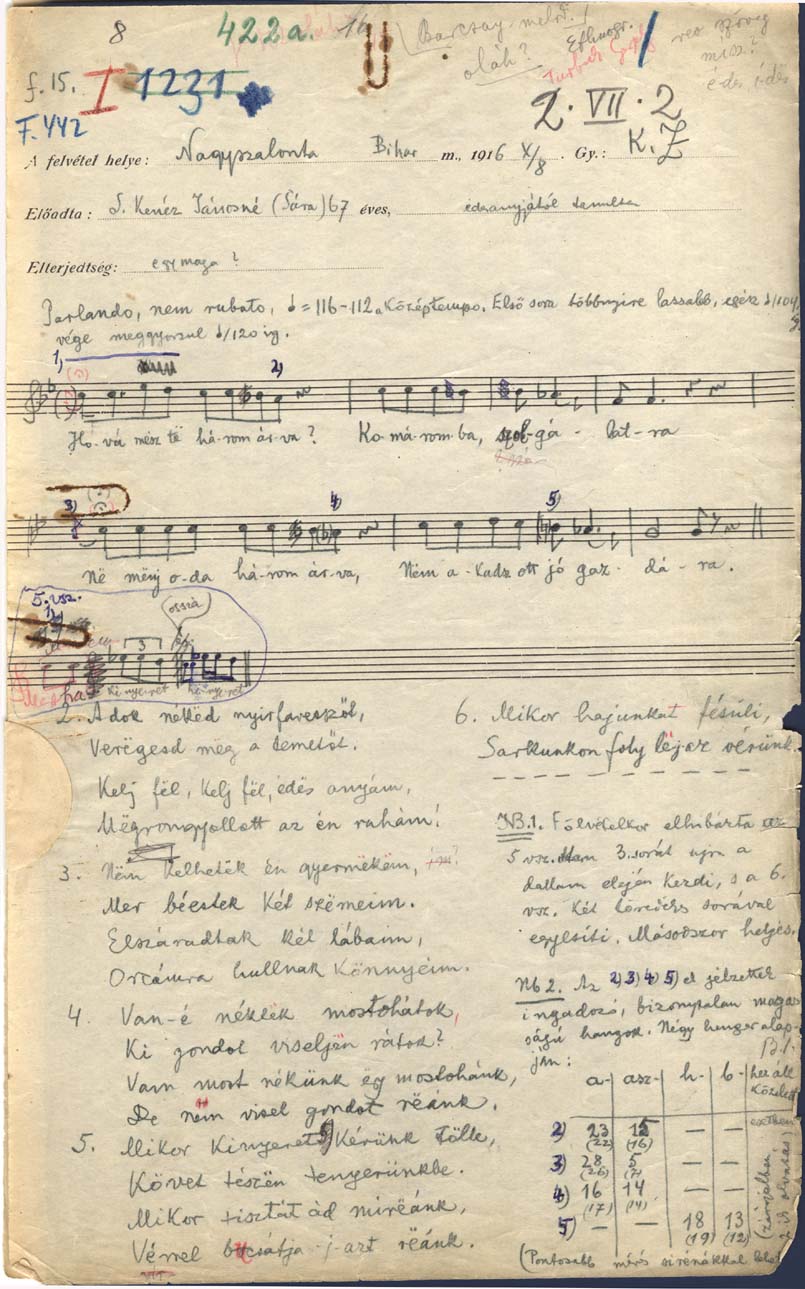 8 422a. 16 Barcsay-mel. Ethnogr.
oláh?
f. 15. I 1231
F. 442 2. VII. 2
A felvétel helye: Nagyszalonta Bihar m., 1916 X/8. Gy.: K. Z
Előadta: S. Kenéz Jánosné (Sára) 67 éves, édesanyjától tanulta
Elterjedtség: egymaga?
Parlando, nem rubato, = 116-112. Középtempo. Első sora többnyire lassabb, egész /104,
vége meggyorsul /120 ig.
1) 2)
Hová mész të há-rom ár-va? Ko-má-rom-ba, szol-gá-lat-ra
3) 4) 5)
Në mënj o-da há-rom ár-va, Nëm a-kadsz ott jó gaz-dá-ra.
5. vsz.
ossza
3
ki-nye-rét
2. Adok nékëd nyirfavesszőt,
Verëgesd mëg a temetőt.
Kelj fël, kelj fël, édës anyám,
Mëgrongyollott az én ruhám!
3. Nëm kelhetëk én gyermëkëm,
Mer béestek két szëmeim.
Elszáradtak két lábaim,
Orcámra hullnak könnyeim.
4. Van-é néktëk mostohátok,
Ki gondot viseljën rátok?
Vam most nékünk ëgy mostohánk,
De nëm visel gondot rëánk.
5. Mikor kinyeret kérünk tőlle,
Követ tészën tenyerünkbe.
Mikor tisztát ád mirëánk,
Vérrel bocsátja-j-azt rëánk.
6. Mikor hajunkat fésüli,
Sarkunkon foly lë vérünk.
NB.1. Fölvételkor elhibázta
5 vsz. 3. sorát ujra a
dallam elején kezdi, s a 6.
vsz. két sorával
egyesíti. Másodszor helyes.
Nb 2. Az 2) 3) 4) 5) el jelzettek
ingadozó, bizonytalan magas-
ságú hangok. Négy henger alap-
ján: B. I.
a- asz- h- b-
2) 23 (22) 15 (16) — —
3) 28 (26) 5 (7) — —
4) 16 (17) 14 (14) — —
5) — — 18 (19) 13 (12)
(Pontosabb mérés szirénákkal lehet